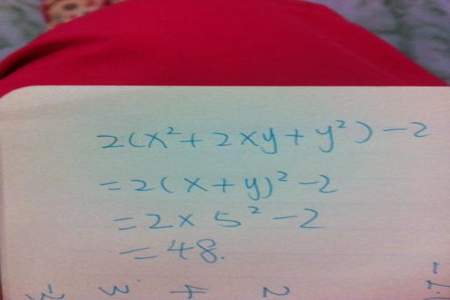 2(x²+2xy+y²)-2
=2(x+y)²-2
=2×5²-2
=48.